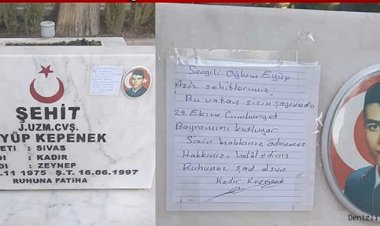 ŞEHİT
J.UZM.ÇVŞ.
YÜP KEPENEK
ETİ : SİVAS
DI : KADİR
DI : ZEYNEP
11 1975 Ş.T. 16.06.1997
RUHUNA FATİHA
Sevgili Oğlum Eyüp
Aziz şehitlerimiz;
Bu vatan sizin sayenizde
29 Ekim Cumhuriyet
Bayramını kutluyor.
Sizin hakkınız ödenmez
Hakkınızı helal ediniz
Ruhunuz şad olsun
Kadir Kepenek
Denizli